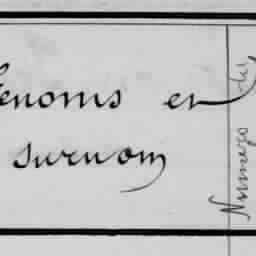 enoms et
surnom
Numéro du